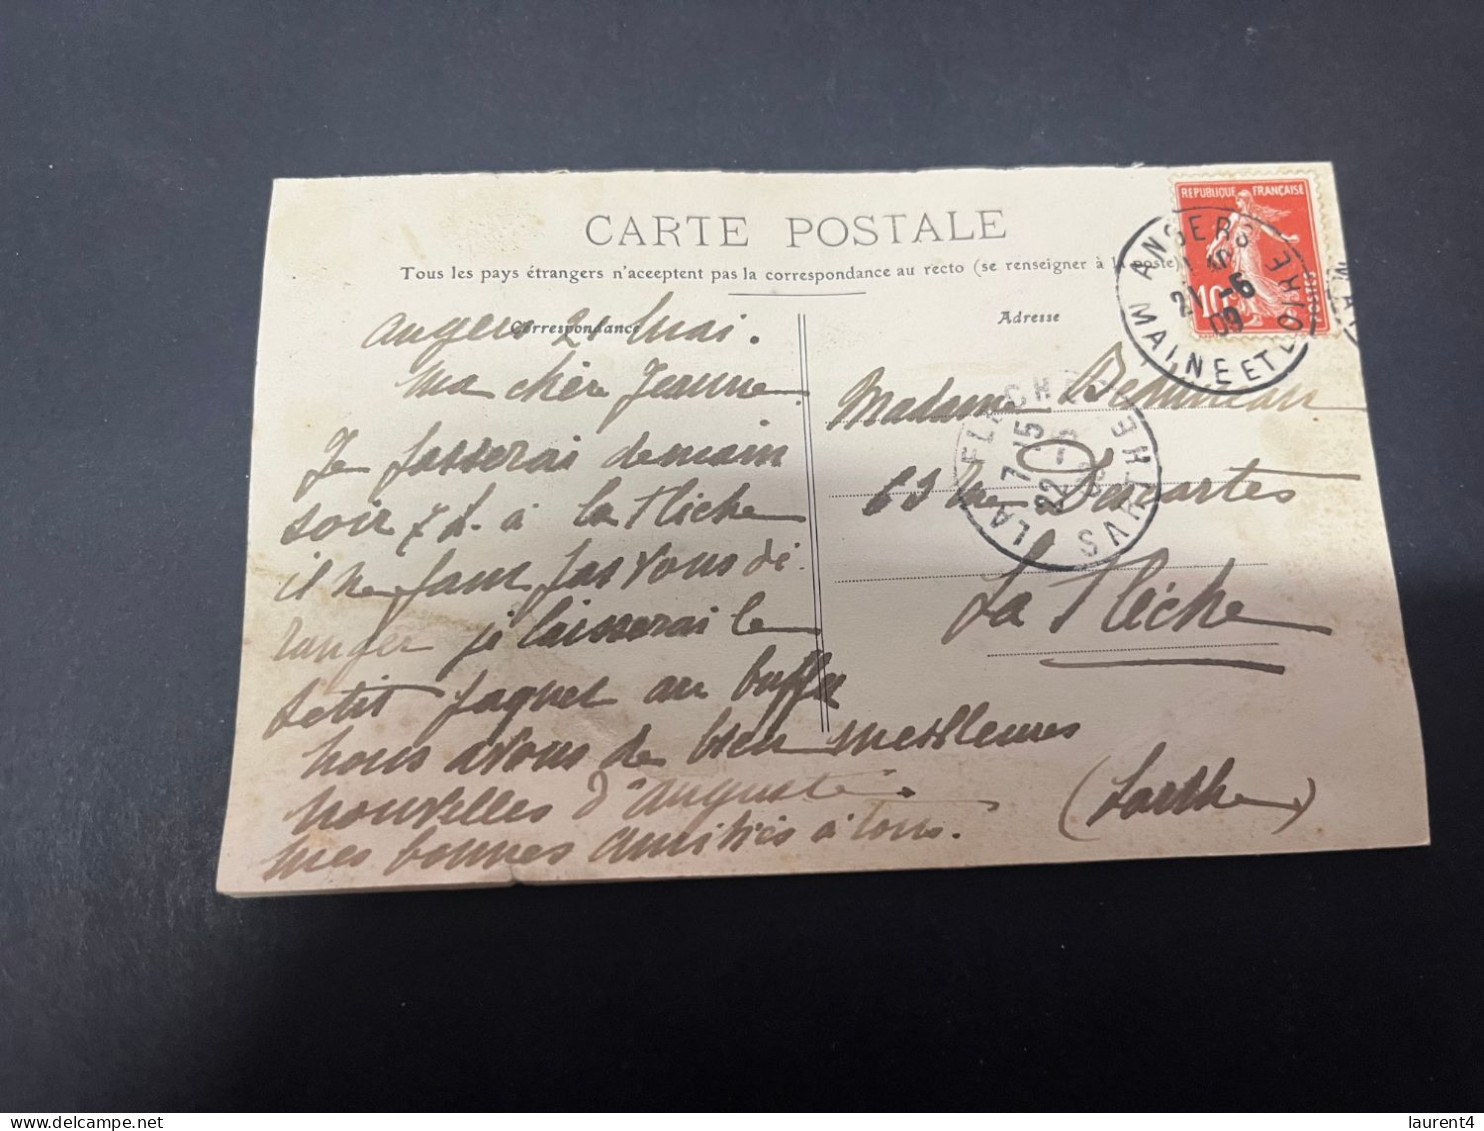 CARTE POSTALE
Tous les pays étrangers n'aceeptent pas la correspondance au recto (se renseigner à la poste)
Correspondance
Adresse
REPUBLIQUE FRANÇAISE
10
POSTES
ANGERS
21 -6
09
MAINE ET LOIRE
LA FLECHE
7 15
22 -6
SARTHE
angers 21 Mai.
Ma chère Jeanne
Je passerai demain
soir 7 h. à la Flèche
il ne faut pas vous dé
ranger je laisserai le
petit paquet au buffet
nous avons de bien meilleures
nouvelles d'auguste.
mes bonnes amitiés à tous.
Madame
63 rue Descartes
La Flèche
(Sarthe)
laurent4